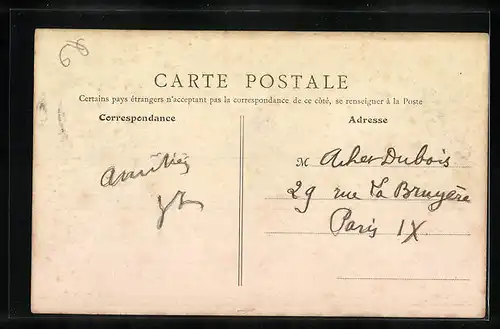 CARTE POSTALE
Certains pays étrangers n'acceptant pas la correspondance de ce côté, se renseigner à la Poste
Correspondance
Adresse
Amitiés
M Acher Dubois
29 rue La Bruyère
Paris IX